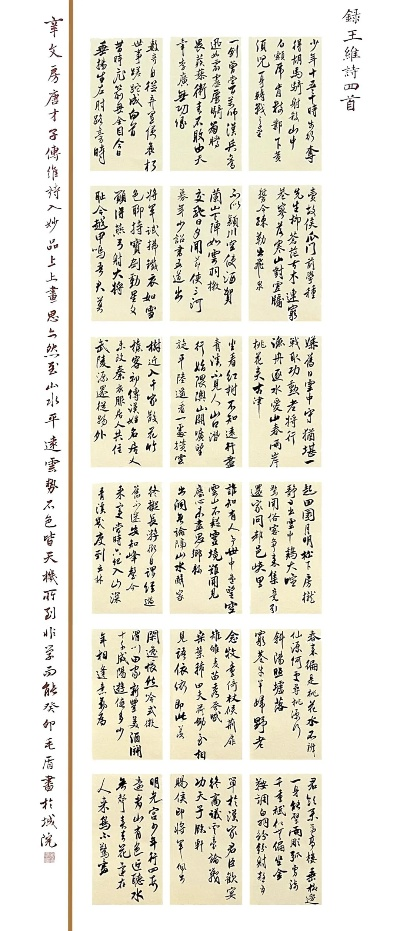 錄王維詩四首
少年十五二十時步行奪
得胡馬騎射殺山中
白額虎肯數鄴下黃
須兒一身轉戰三千里
一劍曾當百萬師漢兵奮
迅如霹靂虜騎奔騰
畏蒺藜衛青不敗由天
幸李廣無功緣
數奇自從棄置便衰朽
世事蹉跎成白首
昔時飛箭無全目今日
垂楊生左肘路旁時
賣故侯瓜門前學種
先生柳蒼茫古木連窮
巷寥落寒山對虛牖
誓令疏勒出飛泉
不似潁川空使酒賀
蘭山下陣如雲羽檄
交馳日夕聞節使三河
募年少詔書五道出
將軍試拂鐵衣如雪
色聊持寶劍動星文
願得燕弓射大將
恥令越甲鳴吾君莫
嫌舊日雲中守猶堪一
戰取功勳老將行
漁舟逐水愛山春兩岸
桃花夾古津
坐看紅樹不知遠行盡
青溪不見人山口潛
行始隈隩山開曠望
旋平陸遙看一處攢雲
樹近入千家散花竹
樵客初傳漢姓名居人
未改秦衣服居人共住
武陵源還從物外
起田園月明松下房櫳
靜日出雲中雞犬喧
驚聞俗客爭來集競引
還家問都邑峽里
誰知有人事世中遙望空
雲山不疑靈境難聞見
塵心未盡思鄉縣
出洞無論隔山水辭家
終擬長游衍自謂經過
舊不迷安知峰壑今
來變當時只記入山深
青溪幾度到雲林
春來遍是桃花水不辨
仙源何處尋桃源行
斜陽照墟落
窮巷牛羊歸野老
念牧童倚杖候荊扉
雉雊麥苗秀蠶眠
桑葉稀田夫荷鋤至相
見語依依即此羨
閒逸悵然吟式微
渭川田家新豐美酒鬥
十千咸陽遊俠多少
年相逢意氣為
君飲系馬高樓垂柳邊
一身能擘兩彫弧虜騎
千重只似無偏坐金
鞍調白羽紛紛射殺五
單于漢家君臣歡宴
終高議雲臺論戰
功天子臨軒
賜侯印將軍佩出
明光宮少年行四首
有色近聽水
無聲春去花還在
人來鳥不驚畫
辛文房唐才子傳維詩入妙品上上畫思亦然至山水平遠雲勢石色皆天機所到非學而能癸卯毛盾書於城院